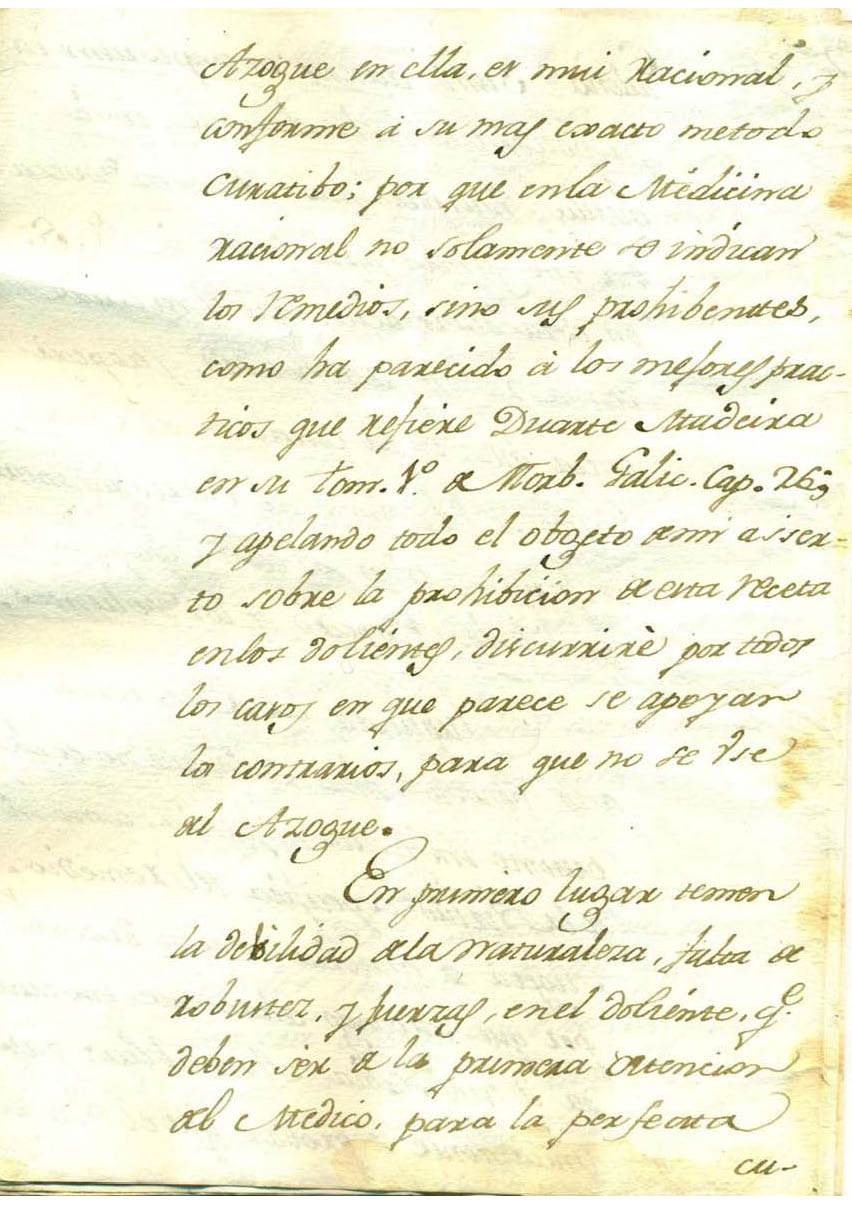 Azogue en ella, es mui racional, y
conforme à su mas exacto metodo
curatibo; por que enla Medicina
racional no solamente se indican
los remedios, sino sus prohibentes,
como ha parecido à los mejores prac-
ticos que refiere Duarte Madeira
en su tom. 1.º de Morb. Galic. Cap. 26;
y apelando todo el obgeto demi asser-
to sobre la prohibicion de esta receta
enlos dolientes, discurrirè por todos
los casos en que parece se apoyan
los contrarios, para que no se Vse
del Azogue.
En primero lugar temen
la debilidad dela Naturaleza, falta de
robustez, y fuerzas, enel doliente, q.e
deben ser de la primera atencion
del Medico, para la perfecta
cu-